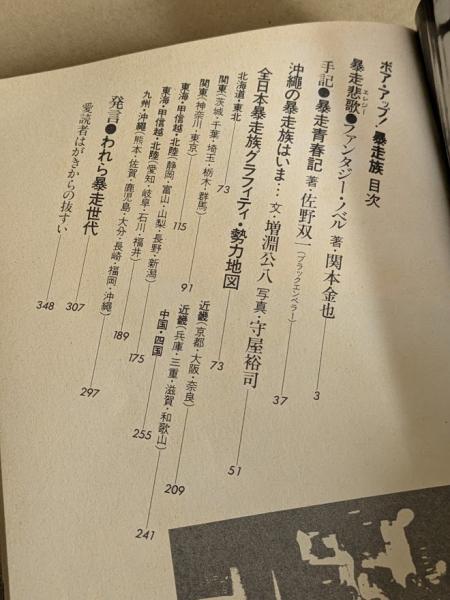 ボア・アップ/暴走族 目次
エレジー
暴走悲歌●ファンタジー・ノベル 著・関本金也 3
手記●暴走青春記 著・佐野双一(ブラックエンペラー) 37
沖縄の暴走族はいま…文・増淵公八 写真・守屋裕司 51
全日本暴走族グラフィティ・勢力地図 73
北海道・東北 73
関東(茨城・千葉・埼玉・栃木・群馬) 91
関東(神奈川・東京) 115
東海・甲信越・北陸(静岡・富山・山梨・長野・新潟) 175
東海・甲信越・北陸(愛知・岐阜・石川・福井) 189
近畿(京都・大阪・奈良) 209
近畿(兵庫・三重・滋賀・和歌山) 241
中国・四国 255
九州・沖縄(熊本・佐賀・鹿児島・大分・長崎・福岡・沖縄) 297
発言●われら暴走世代 307
愛読者はがきからの抜すい 348